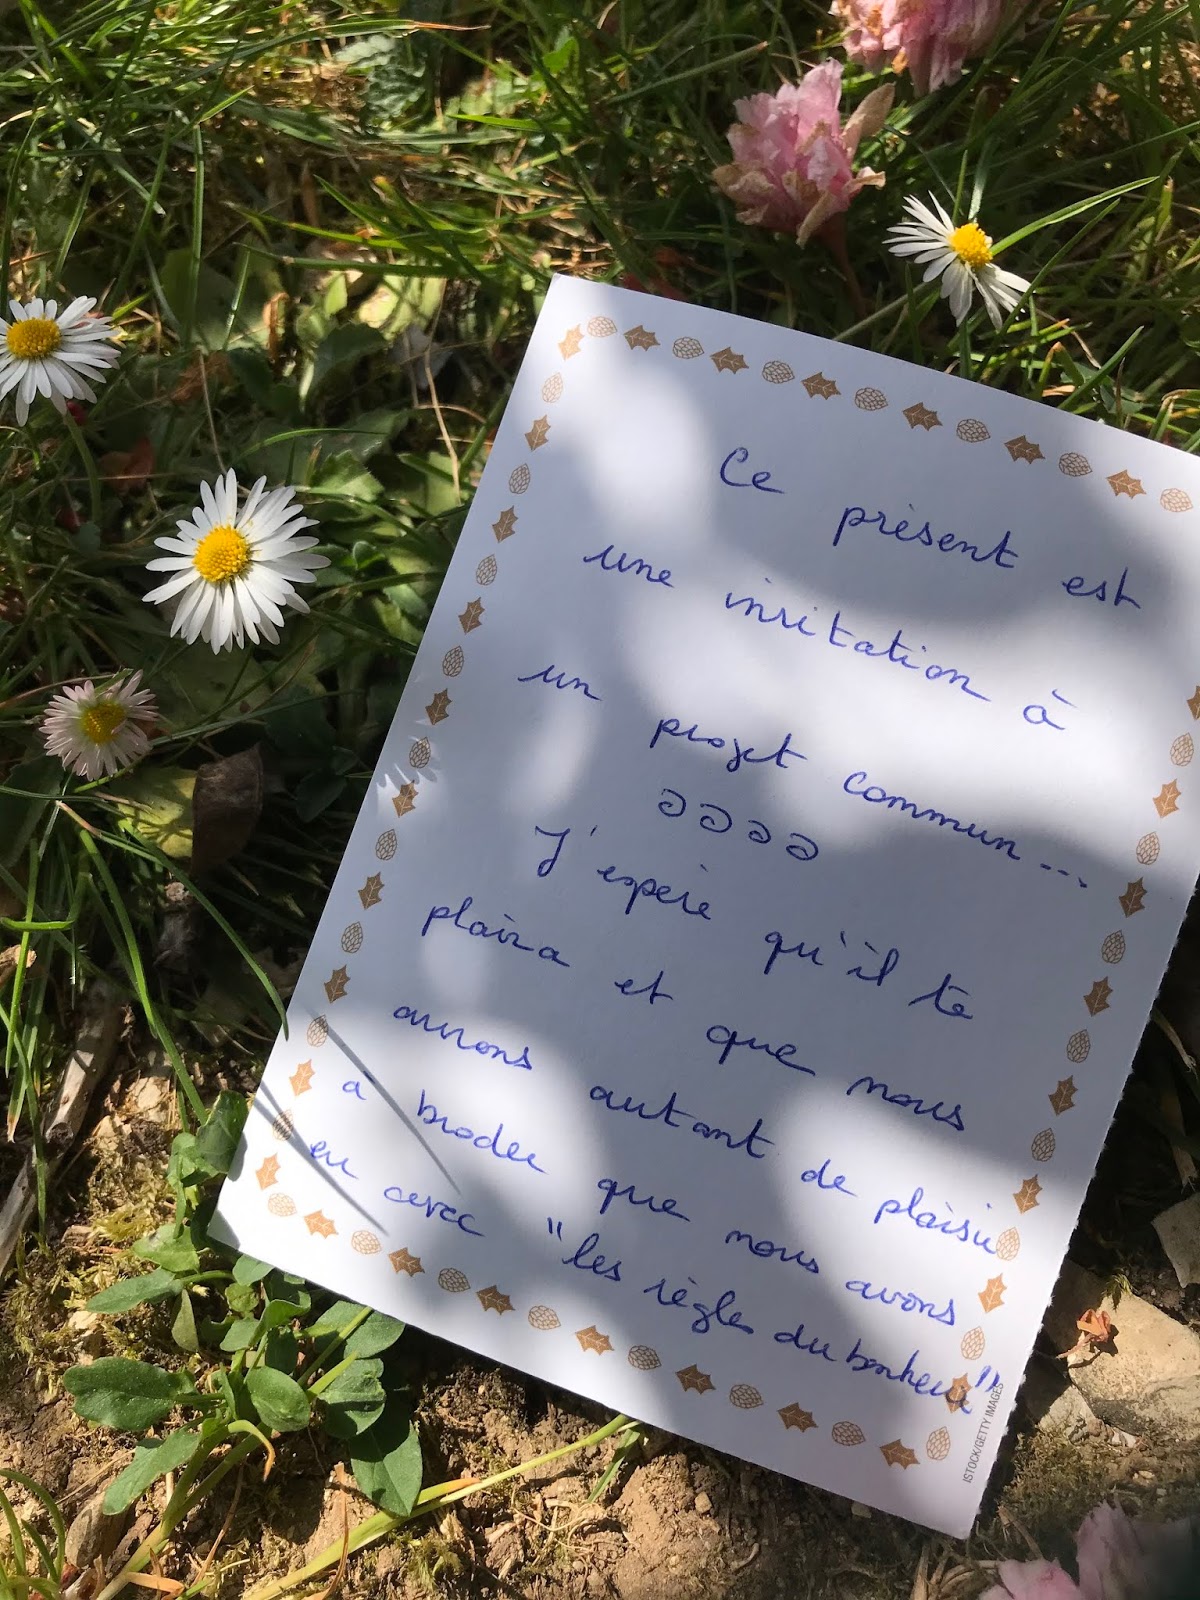 Ce présent est
une invitation à
un projet commun...
J'espère qu'il te
plaira et que nous
aurons autant de plaisir
à broder que nous avons
eu avec "les règles du bonheur"
ISTOCK/GETTY IMAGES